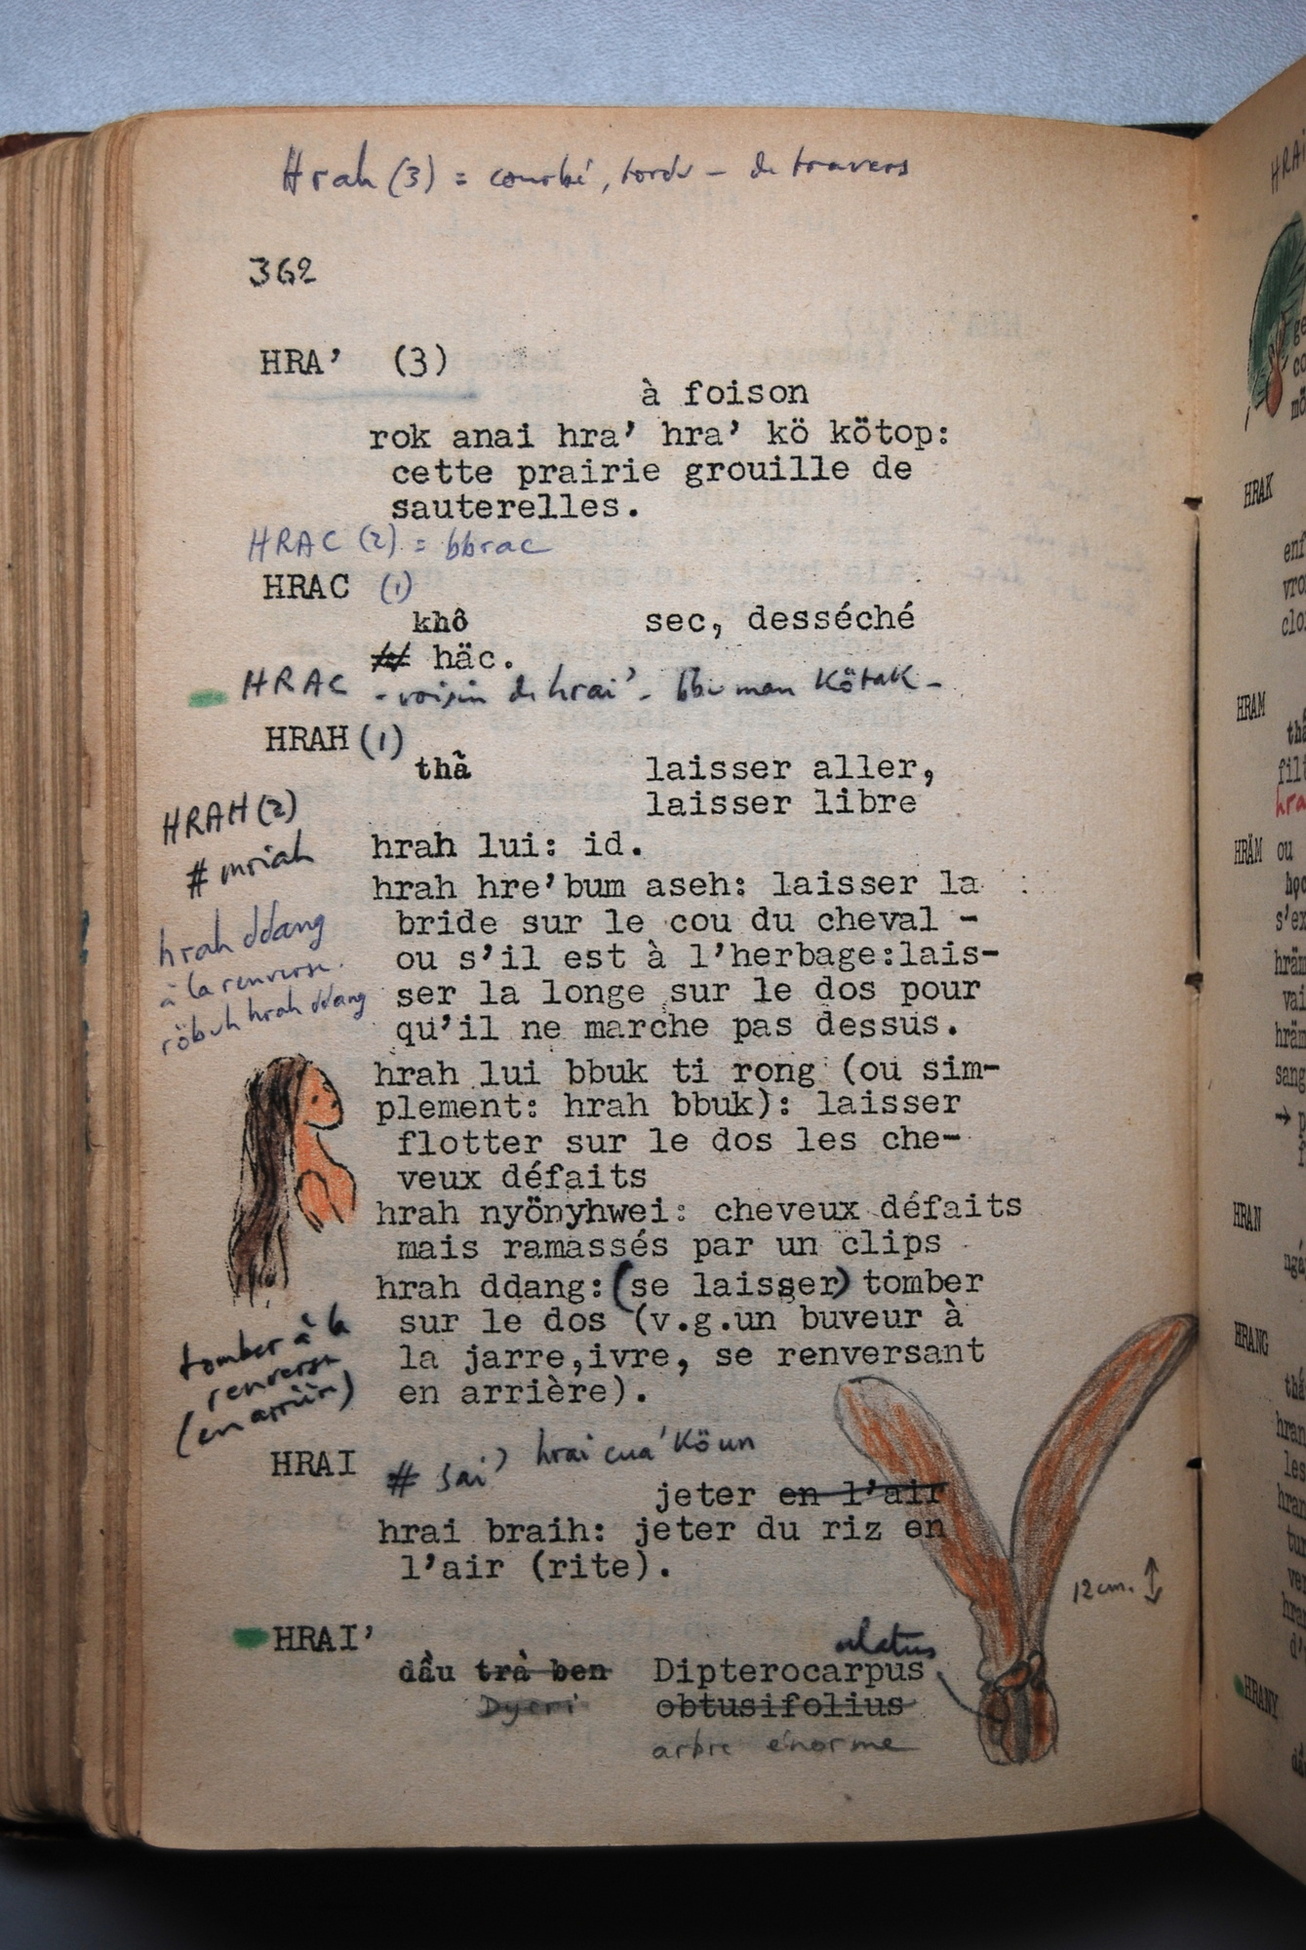 Hrah (3) = courbé, tordu - de travers
362
HRA' (3)
à foison
rok anai hra' hra' kö kötop:
cette prairie grouille de
sauterelles.
HRAC (2) = bbrac
HRAC (1)
khô sec, desséché
# häc.
HRAC - voisin de hrai' - man Kötak -
HRAH (1)
thà laisser aller,
laisser libre
HRAH (2)
# mriah
hrah lui: id.
hrah hre'bum aseh: laisser la
bride sur le cou du cheval -
ou s'il est à l'herbage:lais-
ser la longe sur le dos pour
qu'il ne marche pas dessus.
hrah ddang
à la renverse.
röbuh hrah ddang
hrah lui bbuk ti rong (ou sim-
plement: hrah bbuk): laisser
flotter sur le dos les che-
veux défaits
hrah nyönyhwei: cheveux défaits
mais ramassés par un clips
hrah ddang: (se laisser) tomber
sur le dos (v.g.un buveur à
la jarre,ivre, se renversant
en arrière).
tomber à la
renverse
(en arrière)
HRAI # sai' hrai cua' Köun
jeter en l'air
hrai braih: jeter du riz en
l'air (rite).
12cm.
HRAI'
alatus
dầu trà ben Dipterocarpus
Dyeri obtusifolius
arbre énorme
HRAK
HRAM
HRÄM ou
HRAN
HRANG
HRANY